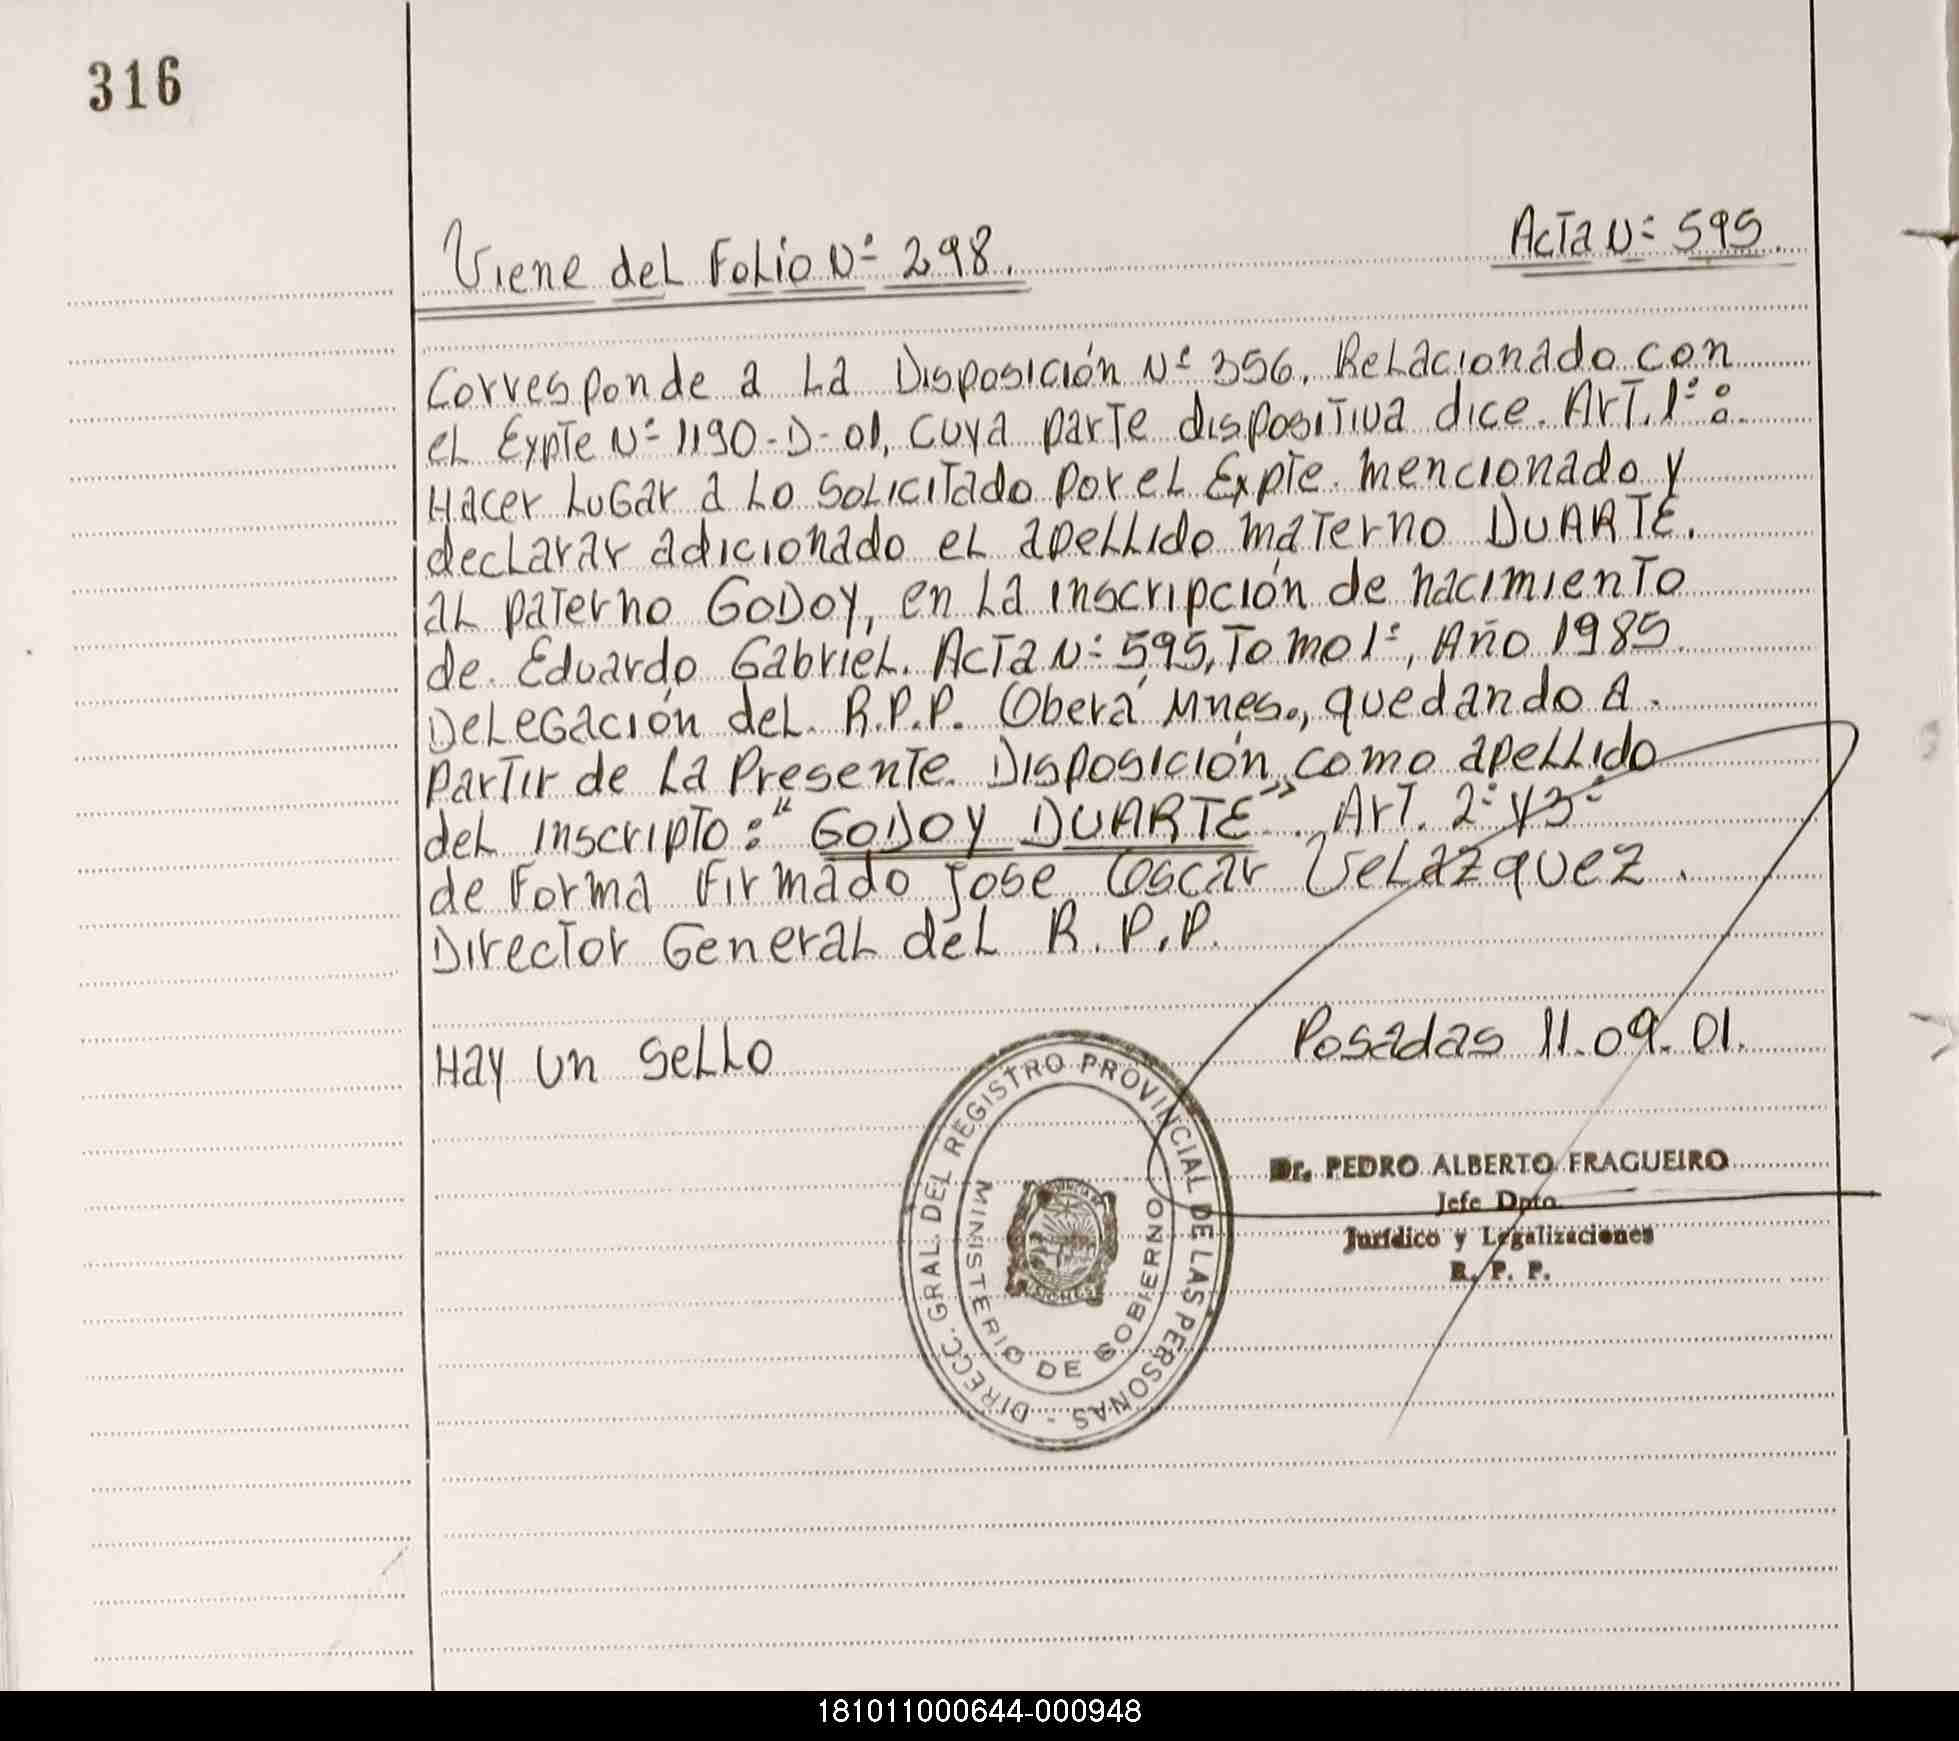 316
Viene del Folio Nº 298.
Acta Nº 595.
Corresponde a La Disposición Nº 356. Relacionado con
el Expte Nº 1190-D-01, cuya parte dispositiva dice. Art. 1º:
Hacer Lugar a Lo Solicitado por el Expte. mencionado y
declarar adicionado el apellido materno DUARTE.
al paterno GODOY, en La inscripción de nacimiento
de Eduardo Gabriel. Acta Nº 595, Tomo 1º, Año 1985.
Delegación del R.P.P. Oberá Mnes., quedando A.
partir de La Presente Disposición como apellido
del inscripto: "GODOY DUARTE". Art. 2º y 3º
de Forma Firmado Jose Oscar Velazquez.
Director General del R.P.P.
Hay un Sello
Posadas 11.09.01.
DIRECC. GRAL. DEL REGISTRO PROVINCIAL DE LAS PERSONAS -
MINISTERIO DE GOBIERNO
Dr. PEDRO ALBERTO FRAGUEIRO
Jefe Dpto.
Jurídico y Legalizaciones
R. P. P.
181011000644-000948